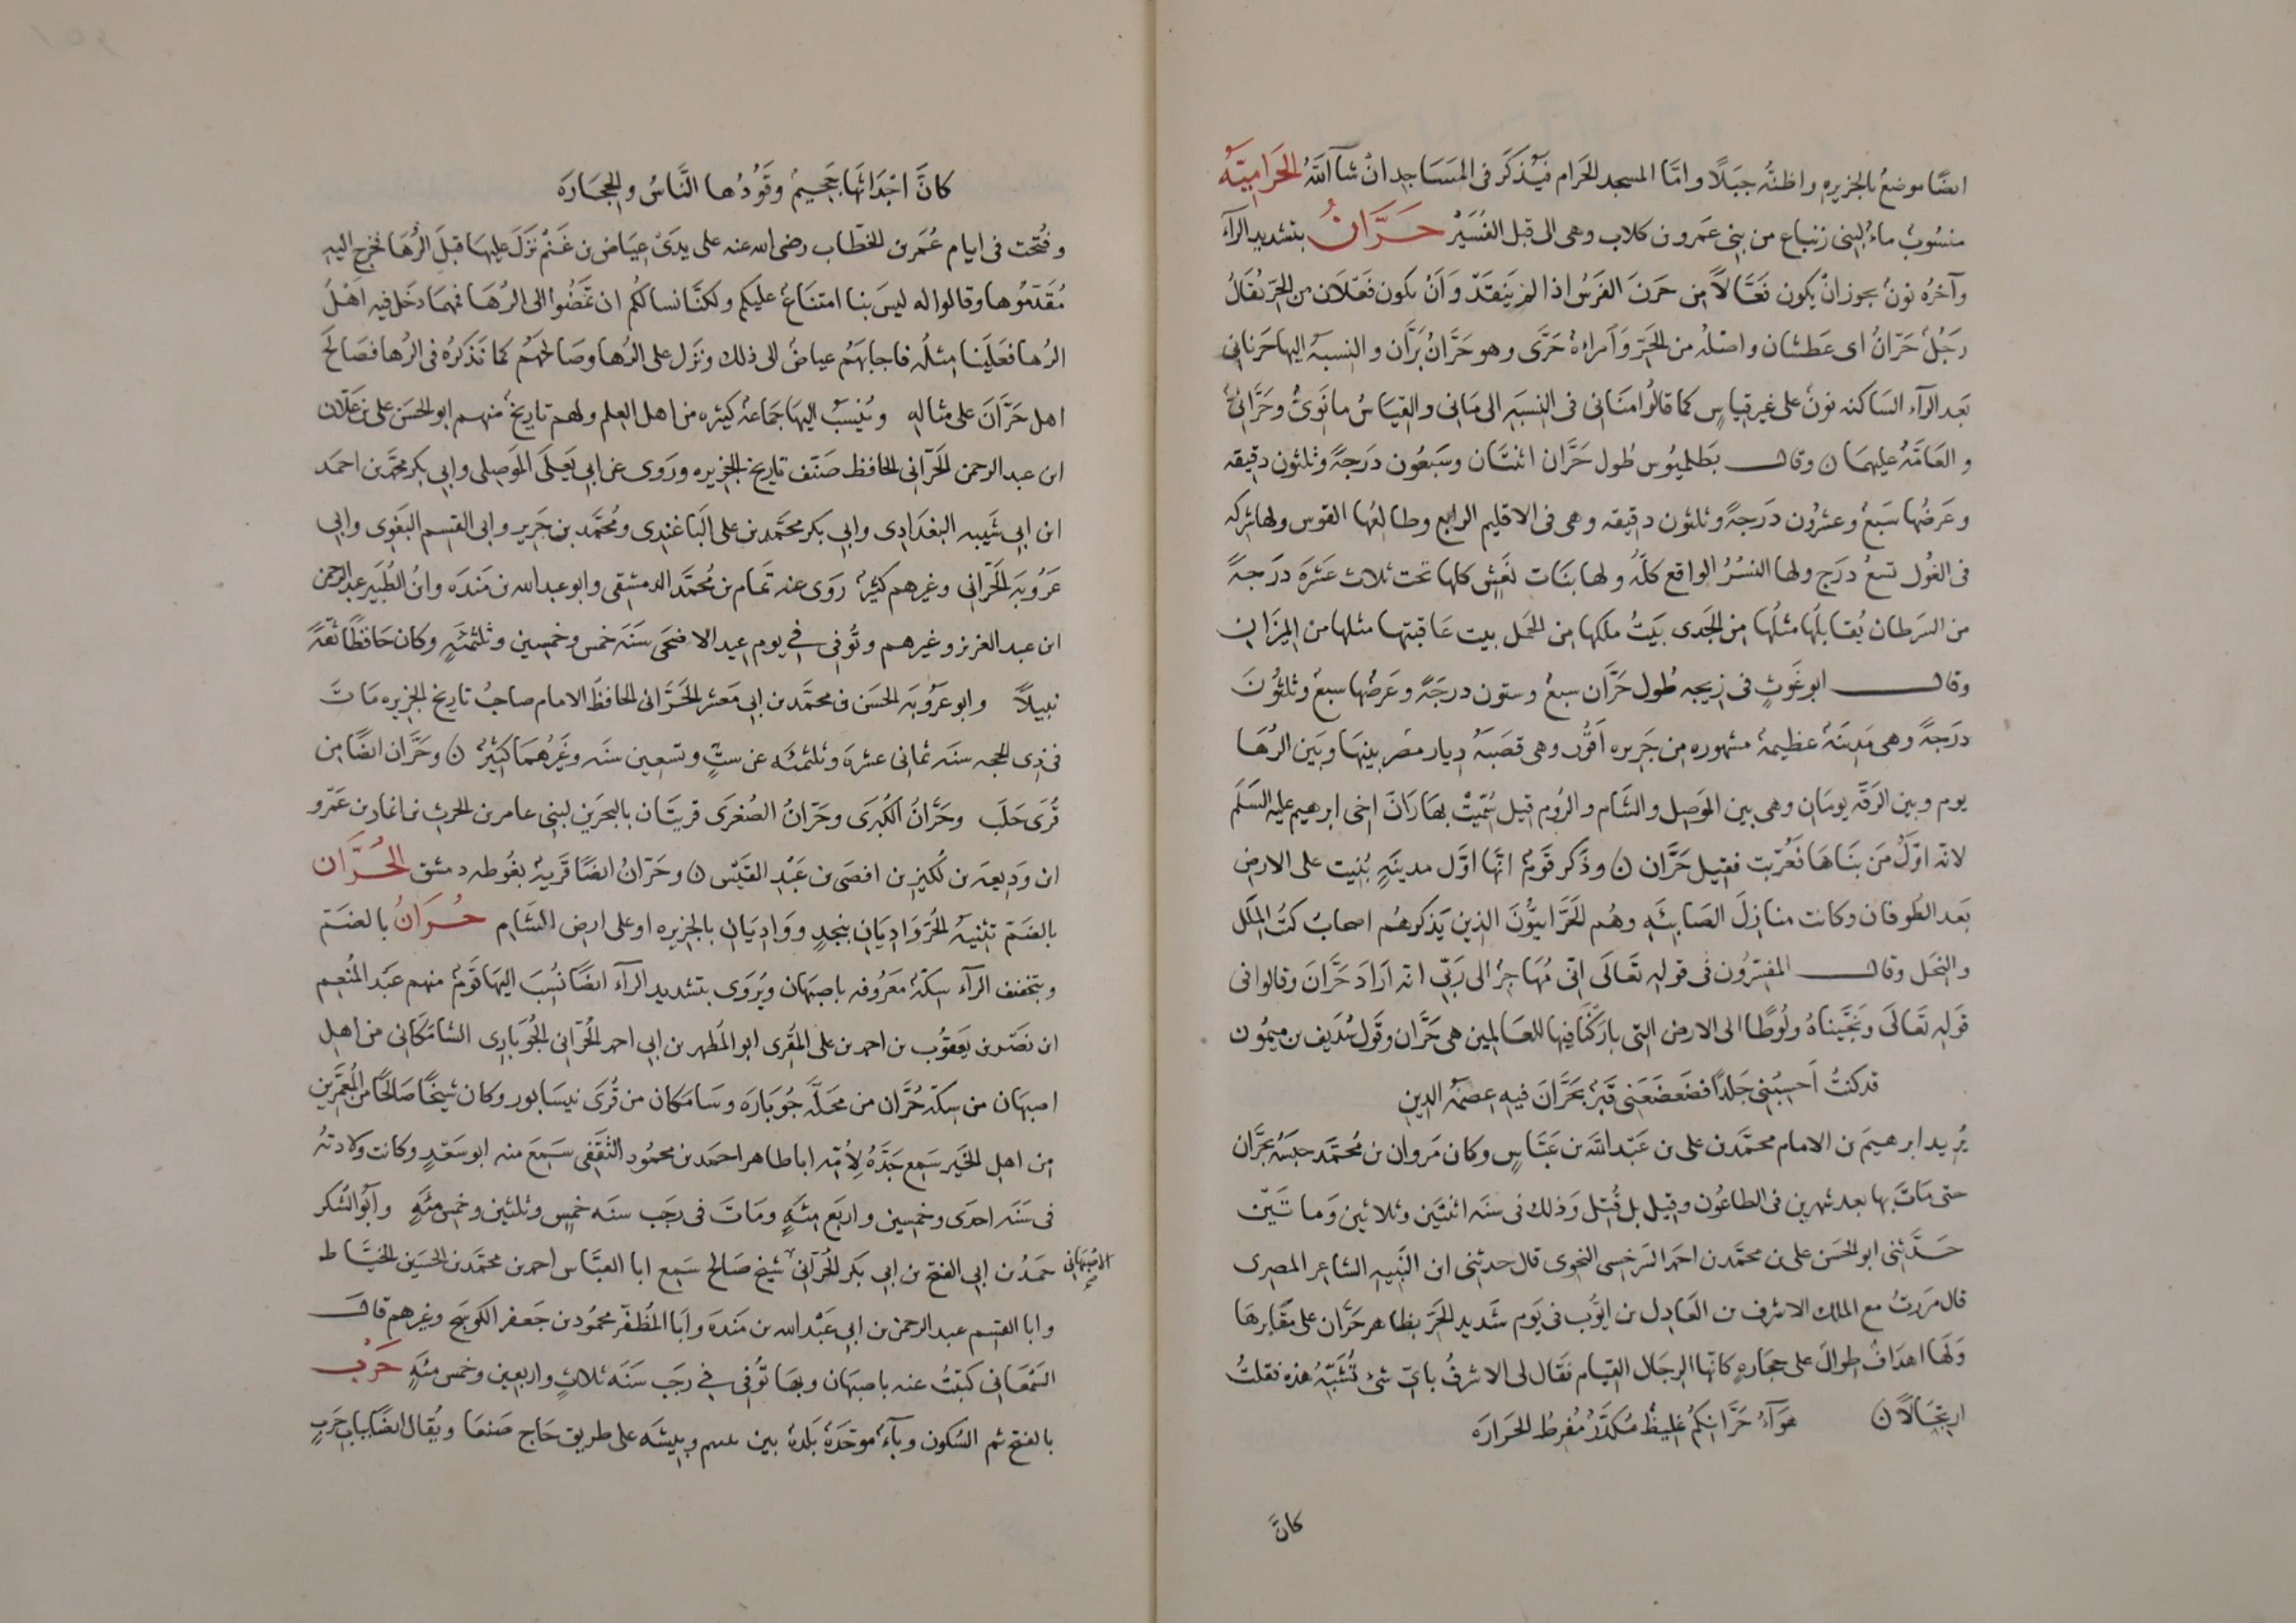 ايضًا موضعٌ بالجزيره واظنّه جبلًا وامّا المسجد الحرام فيُذكر فى المساجد ان شآ اللّه الحراميّه
منسُوبٌ ماءٌ لبنى زنباع من بنى عمرو بن كلاب وهى الى قبل النُسير حرّانُ بتشديد الرآء
وآخره نونٌ يجوز انْ يكون فعّالاً من حرن الفرسُ اذا لم ينقد وانْ يكون فعلان من الحرّ يقالُ
رجُلٌ حرّانُ اى عطشان واصله من الحرّ وامراةٌ حرّى وهو حرّانُ يرّان والنسبه اليها حرنانى
بعد الرآء الساكنه نونٌ على غير قياسٍ كما قالُوا منانى فى النسبه الى مانى والقياسُ مانوىٌّ وحرّانىٌّ
والعامّه عليهما ن وقال بطلميُوس طُول حرّان اثنتان وسبعُون درجةً وثلثون دقيقه
وعرضُها سبعٌ وعشرُون درجةً وثلثون دقيقه وهى فى الاقليم الرابع وطالعُها القوس ولها شركه
فى الغُول تسعُ درج ولها النسرُ الواقع كلّه ولها بنات نعشٍ كلها تحت ثلاث عشرة درجةً
من السرطان يُقابلُها مثلُها من الجدى بيتُ ملكها من الحمل بيت عاقبتها مثلها من الميزان
وقال ابو عونٍ فى زيجه طُول حرّان سبعٌ وستون درجةً وعرضُها سبعٌ وثلثُون
درجةً وهى مدينةٌ عظيمةٌ مشهوره من جزيره اقُور وهى قصبةُ ديار مضر بينها وبين الرُها
يوم وبين الرقّه يومان وهى بين الموصل والشام والرُوم قيل سُمّيتْ بهاران اخى ابرهيم عليه السلم
لانّه اوّلُ من بناها فعُرّبت فقيل حرّان ن وذكر قومٌ انّها اوّل مدينةٍ بُنيت على الارض
بعد الطُوفان وكانت منازل الصابئه وهُم الحرّانيّون الذين يذكرهُم اصحابُ كتُب الملل
والنحل وقال المفسّرُون فى قوله تعالى انّى مُهاجرٌ الى ربّى انه اراد حرّان وقالوا فى
قوله تعالى ونجّيناهُ ولُوطًا الى الارض التى باركْنا فيها للعالمين هى حرّان وقول سُديف بن ميمُون
قد كنتُ احسبُنى جلدًا فضعضعنى قبرٌ بحرّان فيه عصمهُ الدين
يُريد ابرهيم بن الامام محمّد بن على بن عبد اللّه بن عبّاسٍ وكان مروان بن مُحمّد حبسهُ بحرّان
حتى مات بها بعد شهرين فى الطاعُون وقيل بل قُتل وذلك فى سنه اثنتين وثلاثين وماتين
حدّثنى ابو الحسن على بن محمّد بن احمد السرخسى النحوى قال حدثنى ابن النبيه الشاعر المصرى
قال مررتُ مع الملك الاشرف بن العادل بن ايوُب فى يوم شديد الحرّ بظاهر حرّان على مقابرها
ولها اهدافٌ طوالٌ على حجارةٍ كانّها الرجال القيام فقال لى الاشرفُ باىّ شئ تُشبّهُ هذه فقلتُ
ارتجالًا ن هوآءُ حرّانكمُ غليظٌ مُكدّرٌ مُفرطُ الحراره
كانّ
كانّ اجداثها جحيمٌ وقودُها النّاسُ والحجاره
وفُتحت فى ايام عُمر بن الخطّاب رضى الله عنه على يدىْ عياض بن غنمٌ نزل عليها قبل الرُها فخرج اليه
مُقدّمُوها وقالوا له ليس بنا امتناعٌ عليكم ولكنّا نسالكُم ان تمضُوا الى الرُها فمهما دخل فيه اهلُ
الرُها فعلينا مثلُه فاجابهُم عياضٌ الى ذلك ونزل على الرُها وصالحهُم كما نذكرُه فى الرُها فصالح
اهل حرّان على مثاله ويُنسبُ اليها جماعةٌ كثيره من اهل العلم ولهم تاريخٌ منهم ابو الحسن على بن علان
ابن عبد الرحمن الحرّانى الحافظ صنّف تاريخ الجزيره وروى عن ابى يعلى الموصلى وابى بكر محمّد بن احمد
ابن ابى شيبه البغدادى وابى بكر محمّد بن على الباغندى ومُحمّد بن جرير وابى القسم البغوى وابى
عرُوبه الحرّانى وغيرهم كثيرٌ روى عنه تمام بن مُحمّد الدمشقى وابو عبد الله بن منده وابنُ الطُبيز عبد الرحمن
ابن عبد العزيز وغيرهم وتُوفى فى يوم عيد الاضحى سنه خمس وخمسين وثلثمئةٍ وكان حافظًا ثقةً
نبيلاً وابو عرُوبه الحسن بن محمّد بن ابى معشر الحرّانى الحافظ الامام صاحبُ تاريخ الجزيره مات
فى ذى الحجه سنه ثمانى عشره وثلثمئه عن ستٍّ وتسعين سنه وغيرُهما كثيرٌ ن وحرّان ايضًا من
قُرى حلب وحرّانُ الكُبرى وحرّانُ الصُغرى قريتان بالبحرين لبنى عامر بن الحرث بن انمار بن عمرو
ابن وديعه بن لُكيز بن افصى بن عبد القيس ن وحرّانُ ايضًا قريةٌ بغُوطه دمشق الحُرّان
بالضمّ تثنيهُ الحُرّ واديان بنجدٍ وواديان بالجزيره او على ارض الشام حُرانُ بالضمّ
وبتخفيف الرآء سكّةٌ معرُوفه باصبهان ويُروى بتشديد الرآء ايضًا نُسب اليها قومٌ منهم عبد المُنعم
ابن نصر بن يعقُوب بن احمد بن على المقُرى ابو المُطهر بن ابى احمد الحُرّانى الجُوبارى الشامكانى من اهل
اصبهان من سكّه حُرّان من محلّه جُوباره وسامكان من قُرى نيسابور وكان شيخًا صالحًا من المُعمّرين
من اهل الخير سمع جدّهُ لاُمّه ابا طاهر احمد بن محمُود الثقفى سمع منه ابو سعدٍ وكانت ولادتهُ
فى سنه احدى وخمسين واربع مئةٍ ومات فى رجب سنه خمس وثلثين وخمس مئةٍ وابُو الشُكر
حمدُ بن ابى الفتح بن ابى بكر الحُرّانى شيخ صالح سمع ابا العبّاس احمد بن محمّد بن الحسين الخيّاط
الاصبهانى صح
وابا القسم عبد الرحمن بن ابى عبد الله بن منده وابا المُظفّر محمُود بن جعفر الكوسج وغيرهم قال
السمعانى كتبتُ عنه باصبهان وبها تُوفى فى رجب سنه ثلاثٍ واربعين وخمس مئةٍ حرب
بالفتح ثم السُكون وبآءٌ موحّدةٌ بلدةٌ بين يبمبم وبيشه على طريق حاج صنعا ويُقال ايضًا بباب حربٍ